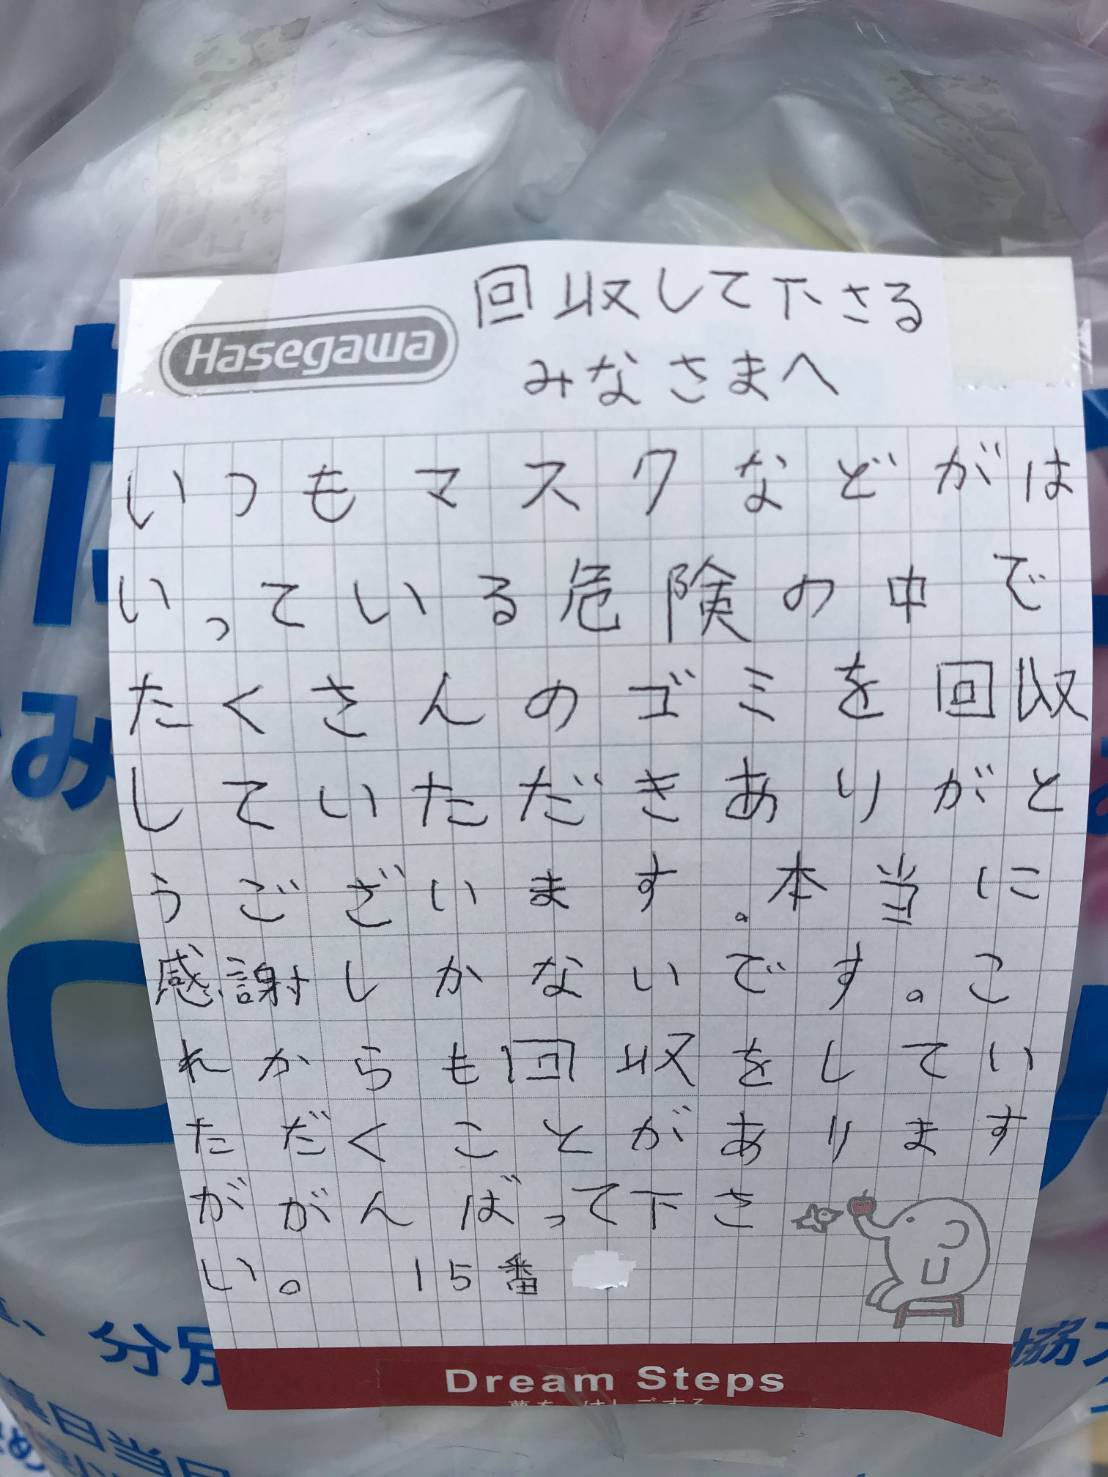 Hasegawa
回収して下さる
みなさまへ
いつもマスクなどがは
いっている危険の中で
たくさんのゴミを回収
していただきありがと
うございます。本当に
感謝しかないです。こ
れからも回収をしてい
ただくことがあります
ががんばって下さ
い。 15番
Dream Steps
み
分別
協
日当日